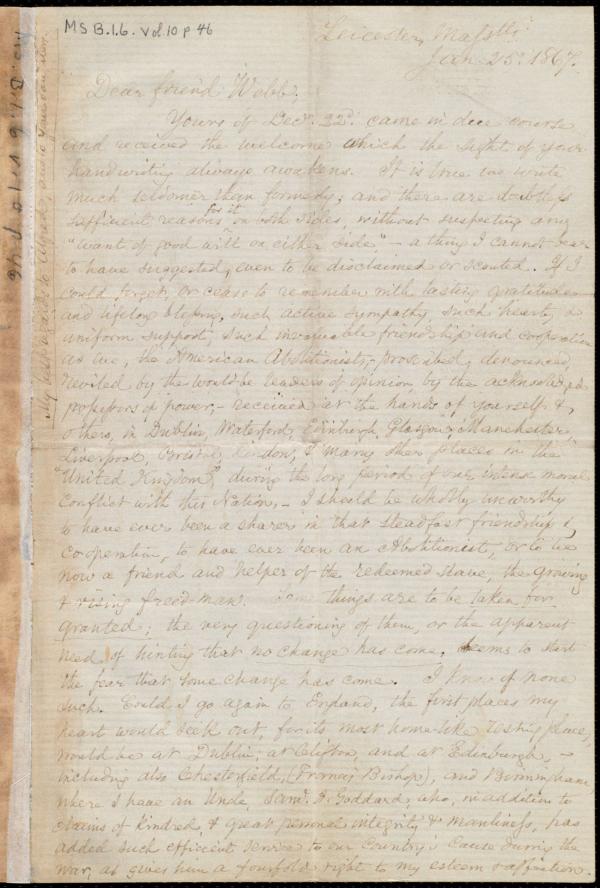 MS B.1.6. Vol.10 p 46
Leicester, Massts.
Jan. 25. 1867.
Dear friend Webb,
Yours of Decr. 22d. came in due course
and received the welcome which the sight of your
handwriting always awakens. It is true we write
much seldomer than formerly; and there are doubtless
sufficient reasons for it on both sides, without suspecting any
"want of good will on either side" - a thing I cannot bear
to have suggested, even to be disclaimed or scouted. If I
could forget, or cease to remember with lasting gratitude
and lifelong such active sympathy, such hearty &
uniform support, such invaluable friendship and cooperation
as we, the American Abolitionists, - proscribed, denounced,
reviled by the would-be leaders of opinion, by the acknowledged
possessors of power, - received at the hands of yourself &
others, in Dublin, Waterford, Edinburgh, Glasgow, Manchester,
Liverpool, Bristol, London, & many other places in the
"United Kingdom", during the long period of our intense moral
conflict with this Nation, - I should be wholly unworthy
to have ever been a sharer in that steadfast friendship &
co-operation, to have ever been an Abolitionist, or to be
now a friend and helper of the redeemed slave, the growing
& rising freed-man. Some things are to be taken for
granted; the very questioning of them, or the apparent
need of hinting that no change has come, seems to start
the fear that some change has come. I know of none
such. Could I go again to England, the first places my
heart would seek out, for its most home-like resting place,
would be at Dublin, at Clifton, and at Edinburgh, -
including also Chesterfield, (Francis Bishop), and Birmingham,
where I have an Uncle, Saml. A. Goddard, who, in addition to
claims of kindred, & great personal integrity & manliness, has
added such efficient service to our Country's Cause during the
war, as gives him a fourfold right to my esteem & affection.
My best regards to Alfred, as also
Ms. B.1.6 v.10 p.46